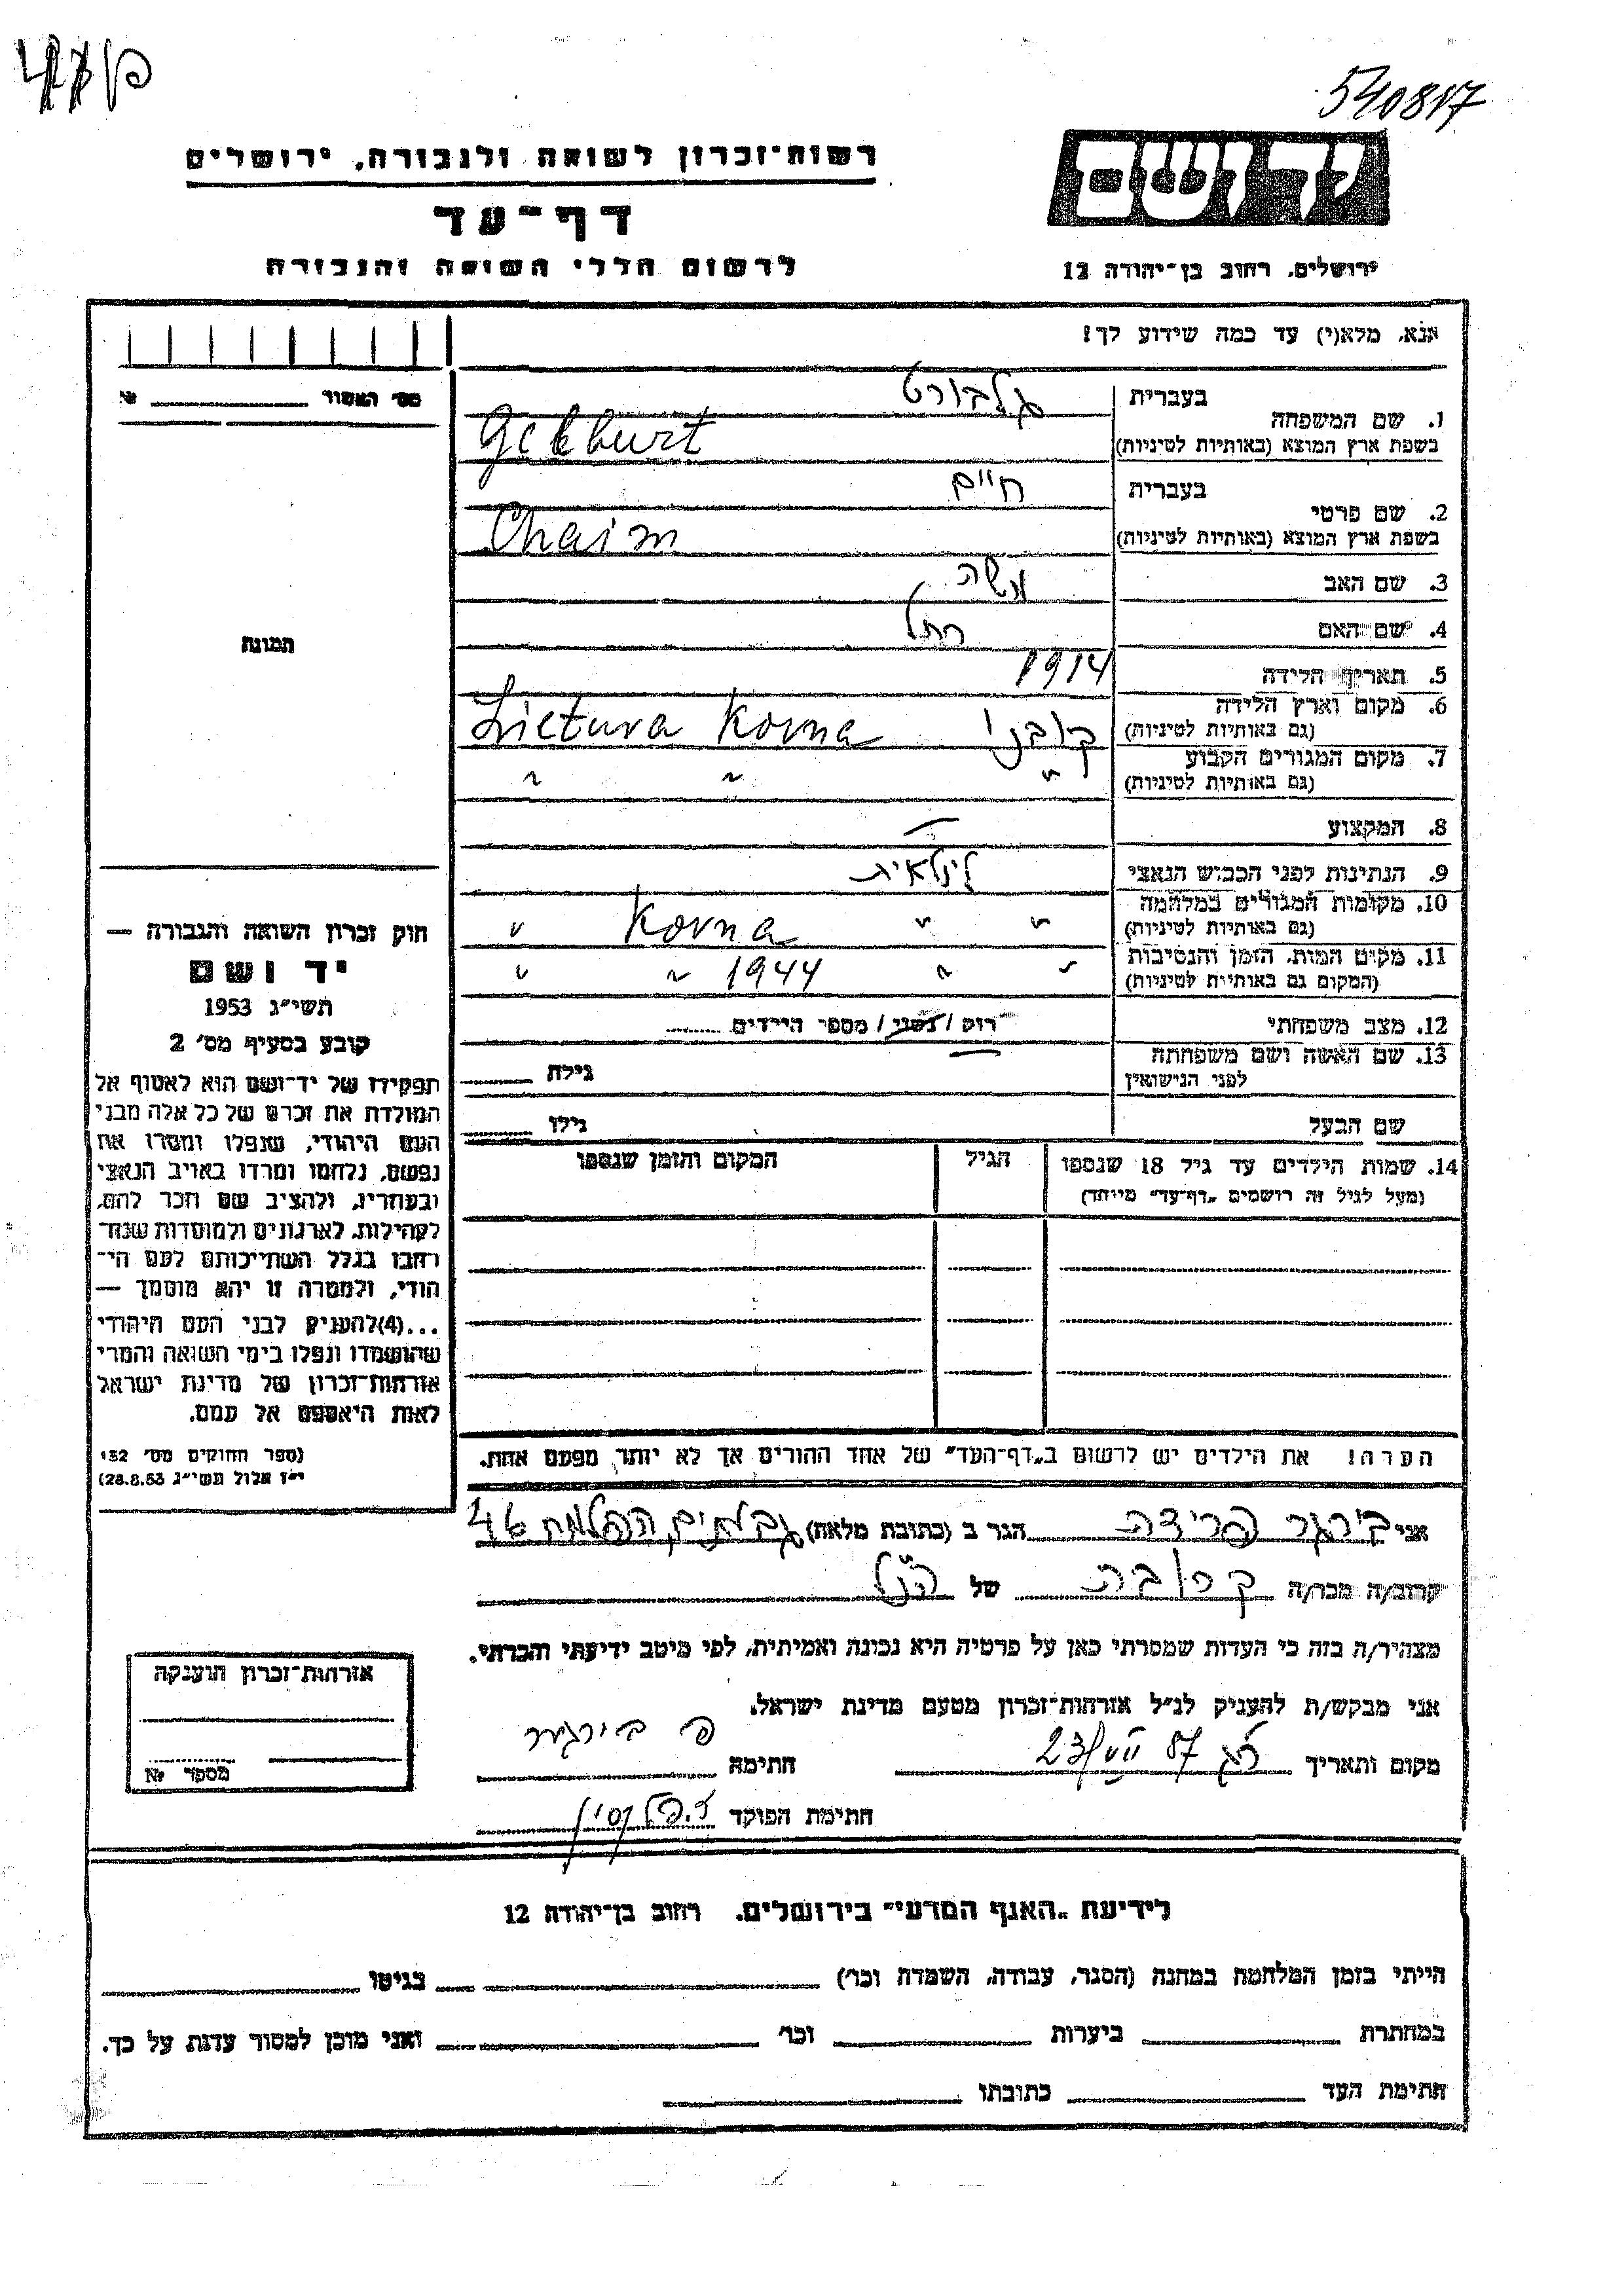 540817
רשות־זכרון לשואה ולגבורה, ירושלים
דף־עד
לרשום חללי השואה והגבורה
יד ושם
ירושלים, רחוב בן־יהודה 12
אנא, מלא(י) עד כמה שידוע לך!
מס' האשור № 
בעברית גלבורט
1. שם המשפחה
בשפת ארץ המוצא (באותיות לטיניות) Gelburt
בעברית חיים
2. שם פרטי
בשפת ארץ המוצא (באותיות לטיניות) Chaim
3. שם האב משה
4. שם האם רחל
5. תאריך הלידה 1914
6. מקום וארץ הלידה
(גם באותיות לטיניות) Lietuva Kovna
7. מקום המגורים הקבוע
(גם באותיות לטיניות) " " "
8. המקצוע —
9. הנתינות לפני הכבוש הנאצי ליטאית
10. מקומות המגורים במלחמה
(גם באותיות לטיניות) " " Kovna "
11. מקום המות, הזמן והנסיבות
(המקום גם באותיות לטיניות) " " 1944 " "
12. מצב משפחתי רוק / נשוי / מספר הילדים
13. שם האשה ושם משפחתה
לפני הנישואין — גילה
שם הבעל גילו
14. שמות הילדים עד גיל 18 שנספו הגיל המקום והזמן שנספו
(מעל לגיל זה רושמים „דף־עד" מיוחד)
הערה! את הילדים יש לרשום ב„דף־העד" של אחד ההורים אך לא יותר מפעם אחת.
תמונה
חוק זכרון השואה והגבורה —
יד ושם
תשי"ג 1953
קובע בסעיף מס' 2
תפקידו של יד־ושם הוא לאסוף אל
המולדת את זכרם של כל אלה מבני
העם היהודי, שנפלו ומסרו את
נפשם, נלחמו ומרדו באויב הנאצי
ובעוזריו, ולהציב שם וזכר להם,
לקהילות, לארגונים ולמוסדות שנח־
רבו בגלל השתייכותם לעם הי־
הודי, ולמטרה זו יהא מוסמך —
...(4)להעניק לבני העם היהודי
שהושמדו ונפלו בימי השואה והמרי
אזרחות־זכרון של מדינת ישראל
לאות היאספם אל עמם.
(ספר החוקים מס' 132
י"ז אלול תשי"ג 28.8.53)
אני בירגר פרידה הגר ב (כתובת מלאה) גבעתיים, הפלמח 46
קרוב/ה מכר/ה קרובה של הנ"ל
מצהיר/ה בזה כי העדות שמסרתי כאן על פרטיה היא נכונה ואמיתית, לפי מיטב ידיעתי והכרתי.
אני מבקש/ת להעניק לנ"ל אזרחות־זכרון מטעם מדינת ישראל.
מקום ותאריך רג 23/VII 87 חתימה פ בירגר
חתימת הפוקד
אזרחות־זכרון הוענקה
מספר №
לידיעת „האגף המדעי" בירושלים, רחוב בן־יהודה 12
הייתי בזמן המלחמה במחנה (הסגר, עבודה, השמדה וכו') בגיטו
במחתרת ביערות וכו' ואני מוכן למסור עדות על כך.
חתימת העד כתובתו